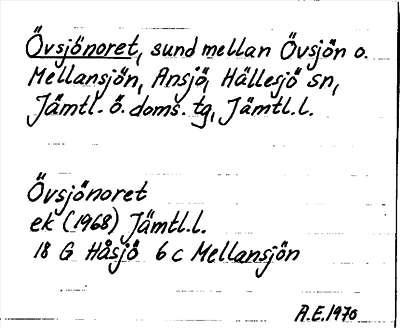 Övsjönoret, sund mellan Övsjön o.
Mellansjön, Ansjö, Hällesjö sn,
Jämtl. ö. doms. tg, Jämtl.l.
Övsjönoret
ek (1968) Jämtl.l.
18 G Håsjö 6 c Mellansjön
A.E.1970